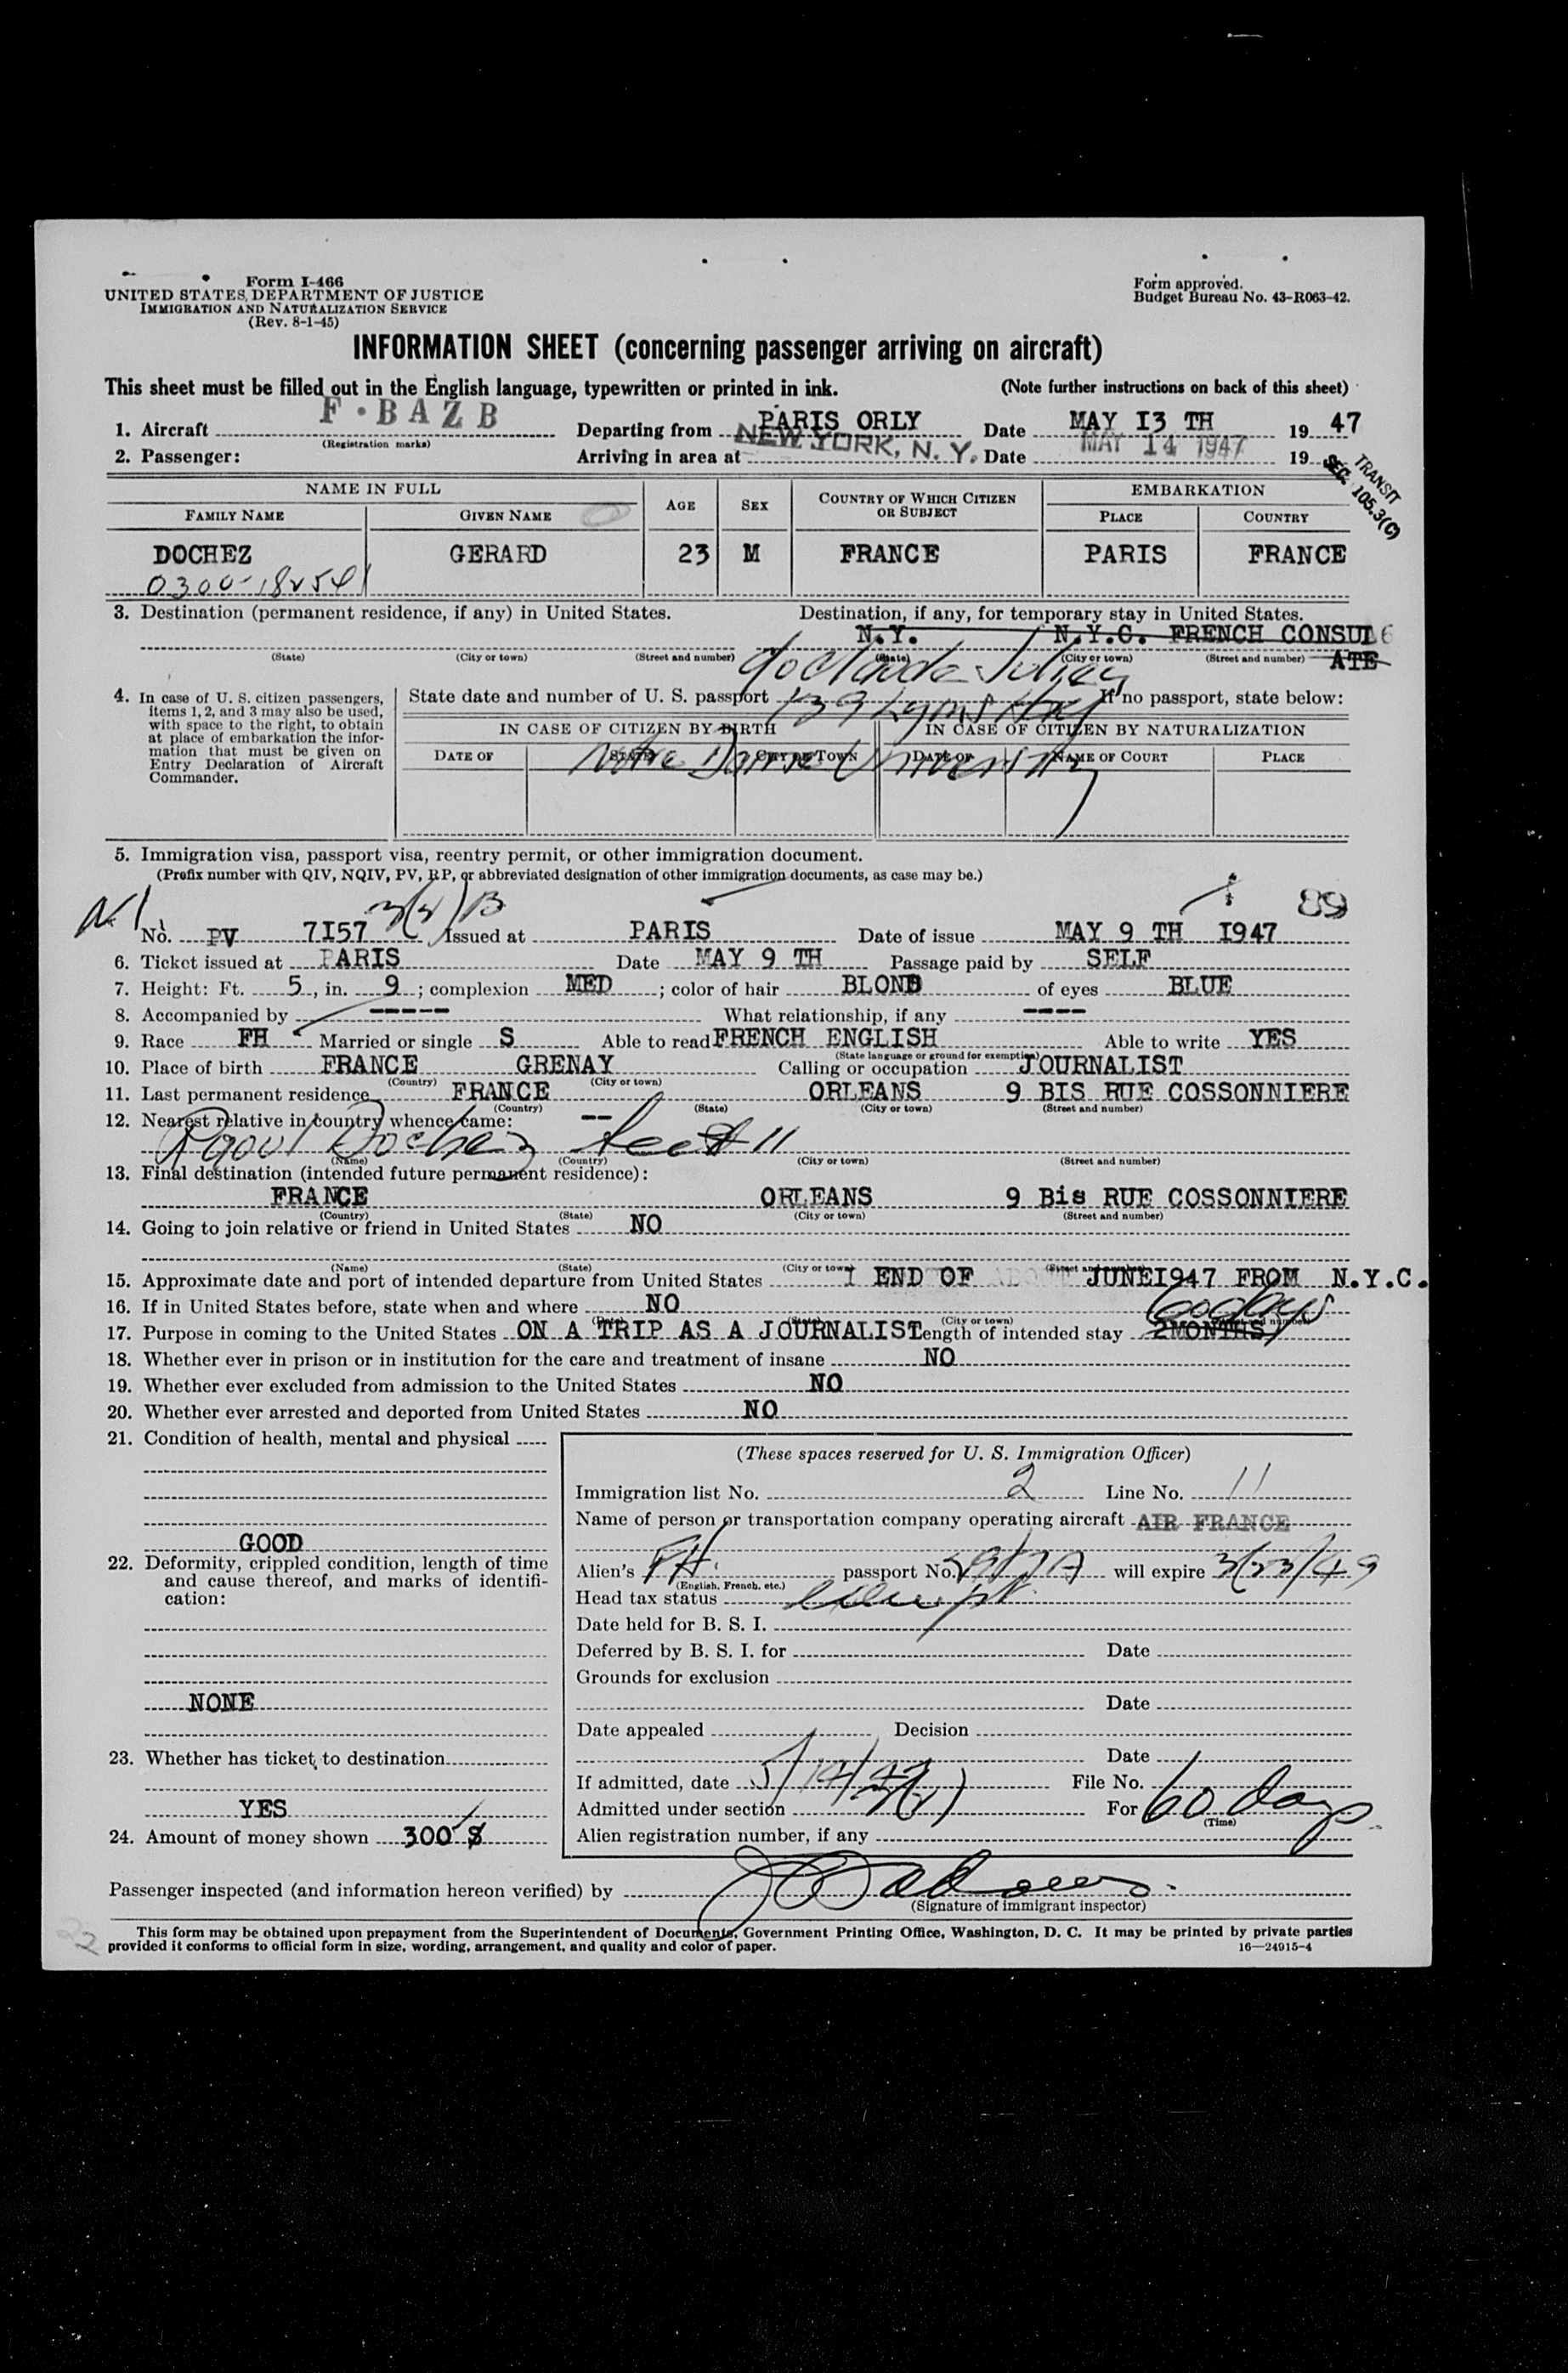 Form I-466
UNITED STATES DEPARTMENT OF JUSTICE
IMMIGRATION AND NATURALIZATION SERVICE
(Rev. 8-1-45)
Form approved.
Budget Bureau No. 43-R063-42.
INFORMATION SHEET (concerning passenger arriving on aircraft)
This sheet must be filled out in the English language, typewritten or printed in ink. (Note further instructions on back of this sheet)
1. Aircraft F·BAZB Departing from PARIS ORLY Date MAY I3 TH 19 47
(Registration marks)
2. Passenger: Arriving in area at NEW YORK, N. Y. Date MAY 14 1947 19
TRANSIT
SEC. 105.3(C)
NAME IN FULL AGE SEX COUNTRY OF WHICH CITIZEN OR SUBJECT EMBARKATION
FAMILY NAME GIVEN NAME PLACE COUNTRY
DOCHEZ GERARD 23 M FRANCE PARIS FRANCE
0300-
3. Destination (permanent residence, if any) in United States. Destination, if any, for temporary stay in United States.
N.Y. N.Y.C. FRENCH CONSUL
ATE
(State) (City or town) (Street and number) (State) (City or town) (Street and number)
4. In case of U. S. citizen passengers, items 1, 2, and 3 may also be used, with space to the right, to obtain at place of embarkation the information that must be given on Entry Declaration of Aircraft Commander.
State date and number of U. S. passport If no passport, state below:
139 Lyons Hall
IN CASE OF CITIZEN BY BIRTH IN CASE OF CITIZEN BY NATURALIZATION
DATE OF STATE CITY OR TOWN DATE OF NAME OF COURT PLACE
Notre Dame University
5. Immigration visa, passport visa, reentry permit, or other immigration document.
(Prefix number with QIV, NQIV, PV, RP, or abbreviated designation of other immigration documents, as case may be.)
3(2) B 89
No. PV 7I57 Issued at PARIS Date of issue MAY 9 TH I947
6. Ticket issued at PARIS Date MAY 9 TH Passage paid by SELF
7. Height: Ft. 5, in. 9; complexion MED; color of hair BLOND of eyes BLUE
8. Accompanied by ----- What relationship, if any ----
9. Race FH Married or single S Able to read FRENCH ENGLISH Able to write YES
(State language or ground for exemption)
10. Place of birth FRANCE GRENAY Calling or occupation JOURNALIST
(Country) (City or town)
11. Last permanent residence FRANCE ORLEANS 9 BIS RUE COSSONNIERE
(Country) (State) (City or town) (Street and number)
12. Nearest relative in country whence came: --
Raoul Dochez 11
(Name) (Country) (City or town) (Street and number)
13. Final destination (intended future permanent residence):
FRANCE ORLEANS 9 Bis RUE COSSONNIERE
(Country) (State) (City or town) (Street and number)
14. Going to join relative or friend in United States NO
(Name) (State) (City or town) (Street and number)
15. Approximate date and port of intended departure from United States END OF JUNEI947 FROM N.Y.C.
16. If in United States before, state when and where NO
60 days
(Date) (State) (City or town) (Street and number)
17. Purpose in coming to the United States ON A TRIP AS A JOURNALIST Length of intended stay 2MONTHS
18. Whether ever in prison or in institution for the care and treatment of insane NO
19. Whether ever excluded from admission to the United States NO
20. Whether ever arrested and deported from United States NO
21. Condition of health, mental and physical
GOOD
22. Deformity, crippled condition, length of time and cause thereof, and marks of identification:
NONE
23. Whether has ticket to destination
YES
24. Amount of money shown 300 $
(These spaces reserved for U. S. Immigration Officer)
Immigration list No. 2 Line No. 11
Name of person or transportation company operating aircraft AIR FRANCE
Alien's FH. passport No. will expire 3/23/49
(English, French, etc.)
Head tax status exempt
Date held for B. S. I.
Deferred by B. S. I. for Date
Grounds for exclusion
Date
Date appealed Decision
Date
If admitted, date 5/14/47 File No.
Admitted under section 3(2) For 60 days
(Time)
Alien registration number, if any
Passenger inspected (and information hereon verified) by
(Signature of immigrant inspector)
This form may be obtained upon prepayment from the Superintendent of Documents, Government Printing Office, Washington, D. C. It may be printed by private parties
provided it conforms to official form in size, wording, arrangement, and quality and color of paper. 16—24915-4
22